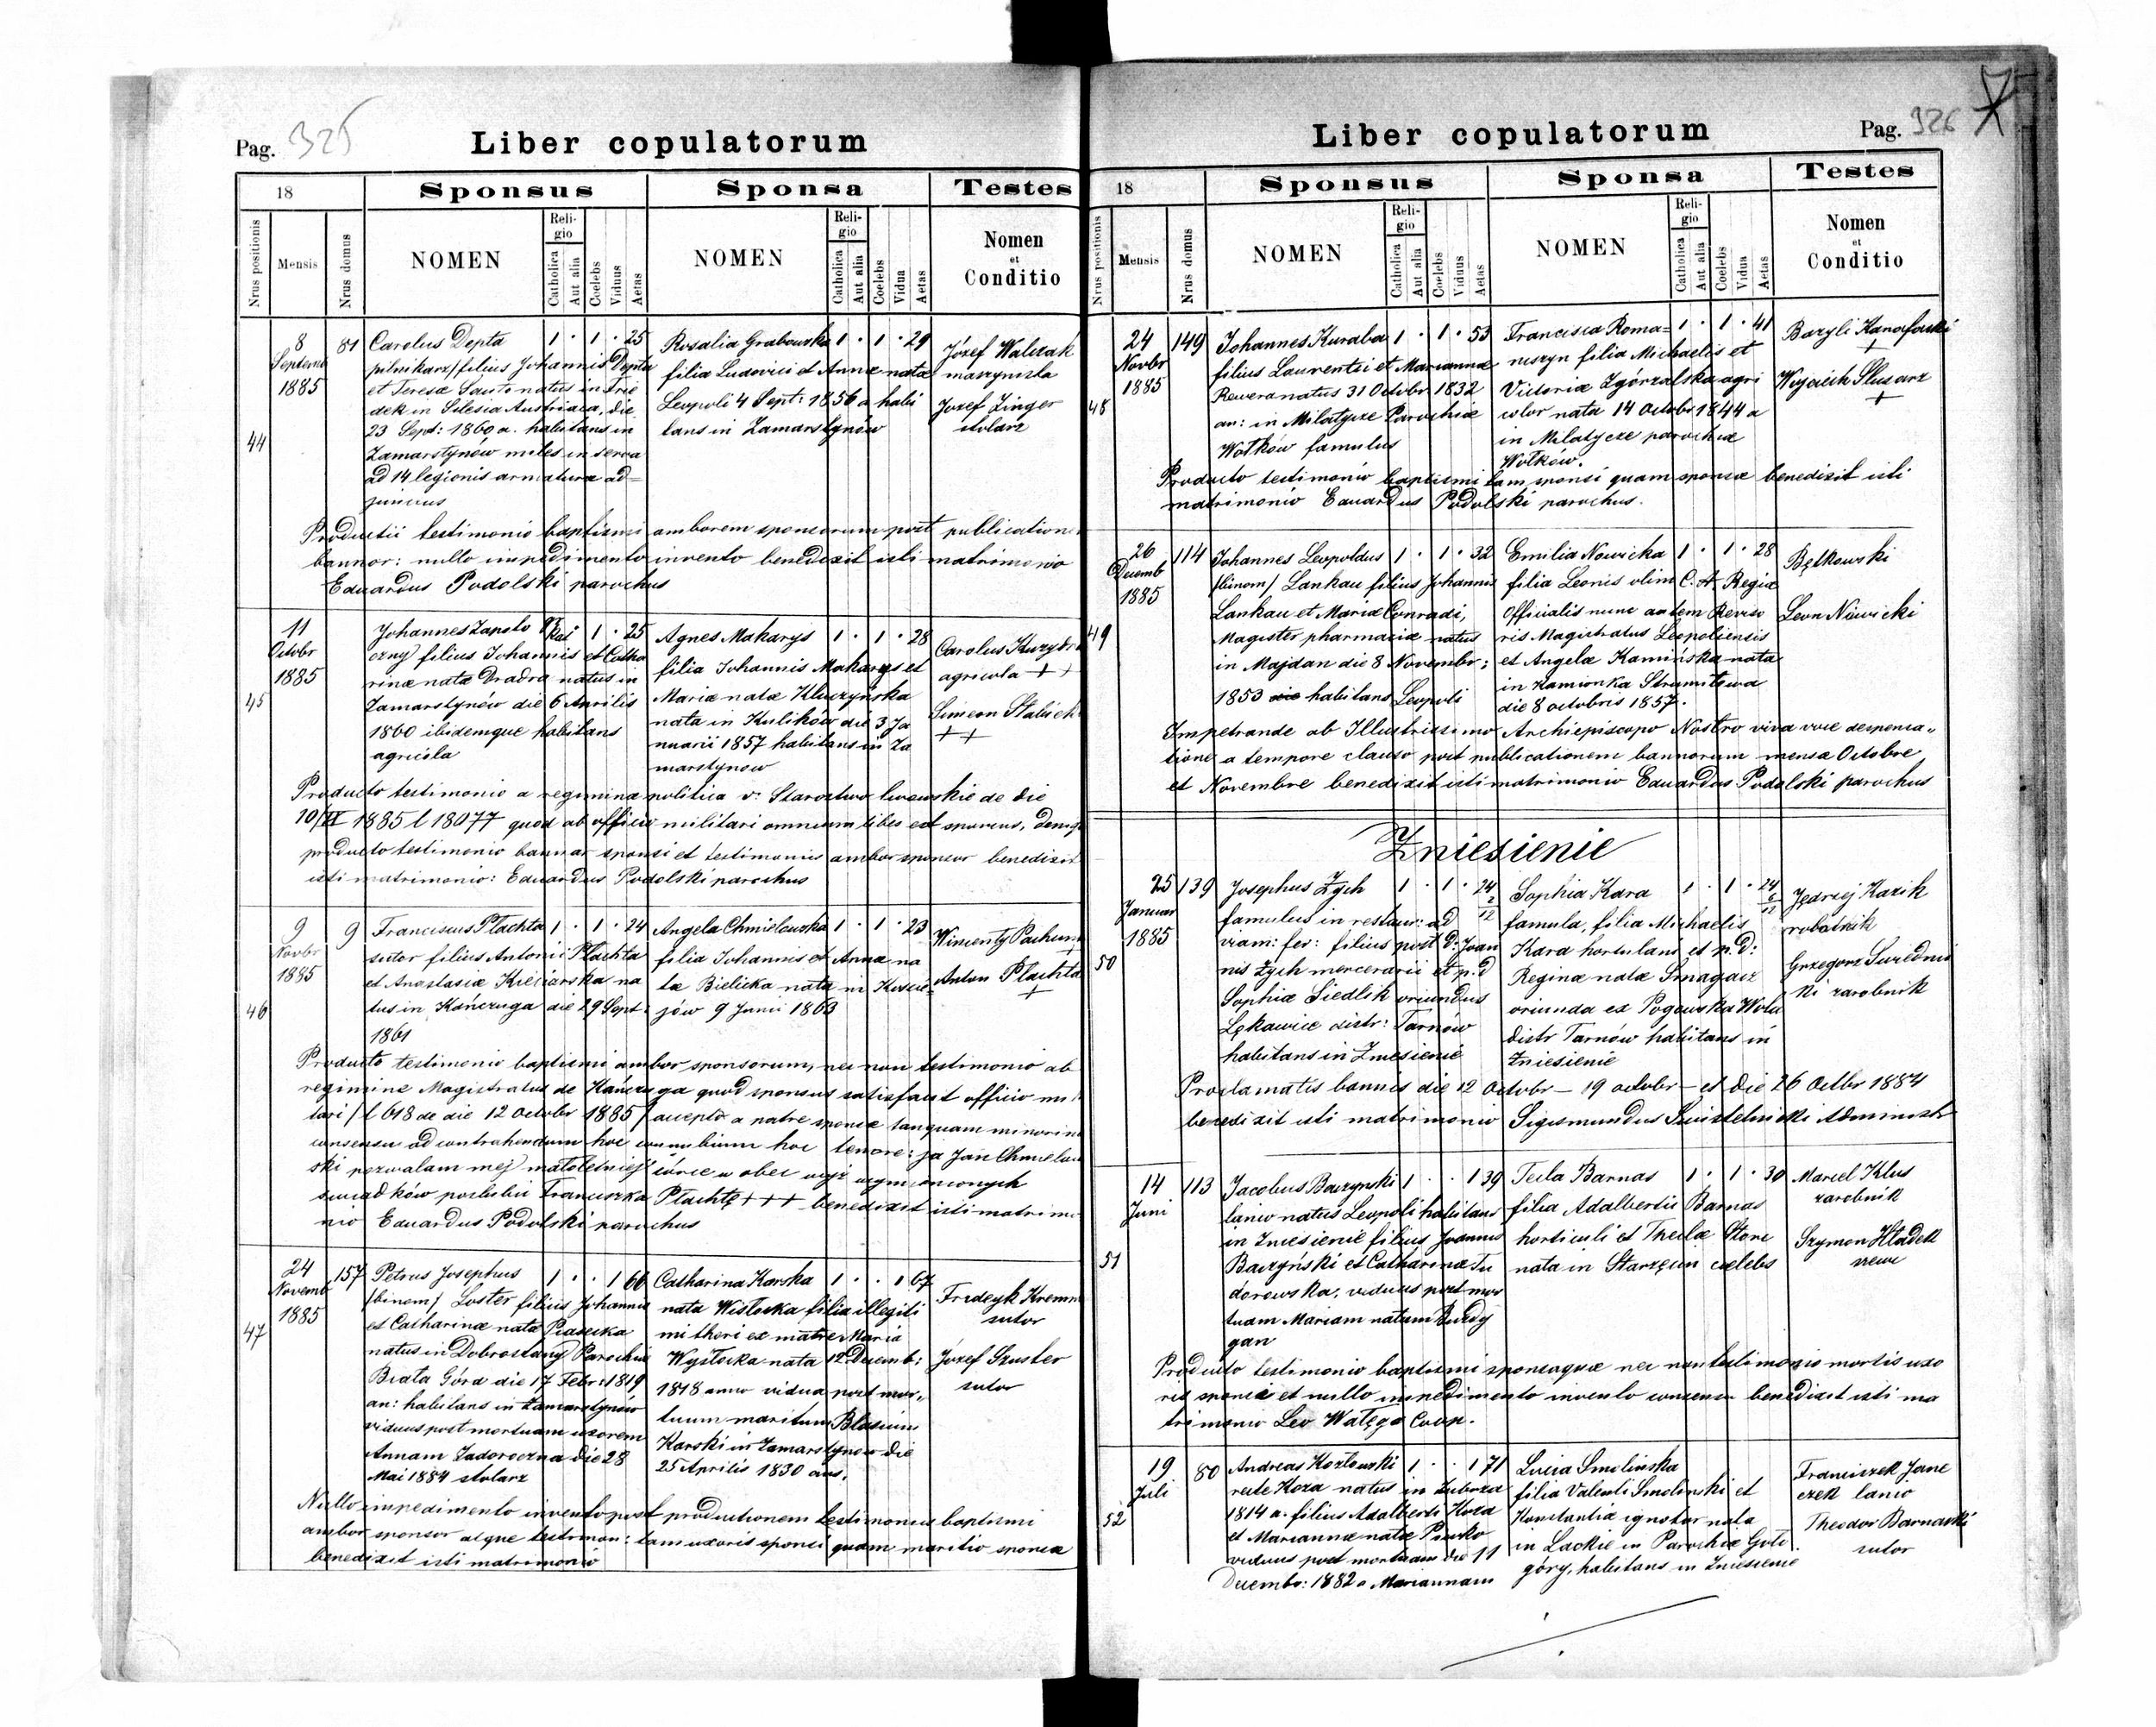 Pag. 325
Liber copulatorum
18
Sponsus
Sponsa
Testes
Nrus positionis
Mensis
Nrus domus
NOMEN
Religio
Catholica
Aut alia
Coelebs
Viduus
Aetas
NOMEN
Religio
Catholica
Aut alia
Coelebs
Vidua
Aetas
Nomen
et
Conditio
44
8
Septemb
1885
81
Carolus Depta
pilnikarz/filius Johannis Depta
et Teresæ Santo natus in
dek in Silesia Austriaca, die
23 Sept: 1860 a. habitans in
Zamarstynów miles in
ad 14 legionis armaturæ ad=
1 · 1 · 25
Rosalia Grabowska
filia Ludovici et Annæ nata
Leopoli 4 Sept: 1856 a habi
tans in Zamarstynów
1 · 1 · 29
Józef Walczak
maszynista
Jozef Zinger
stolarz
testimonio baptismi amborem sponsorum post publicatione
bannor: nullo impedimento invento benedixit isti matrimonio
Eduardus Podolski parochus
45
11
Octobr
1885
Johannes Zapoto
czny filius Johannis et Catha
rinæ nata natus in
Zamarstynów die 6 Aprilis
1860 ibidemque habitans
agricola
1 · 25
Agnes Makarys
filia Johannis Makarys et
Mariæ natæ Kluczyńska
nata in Kulików die 3 Ja
nuarii 1857 habitans in Za
marstynow
1 · 1 · 28
Carolus
agricola + +
Simeon
+ +
Producto testimonio a regimine politica v: Starostwo lwowskie de die
10/II 1885 l 18077 quod ab officio militari omnium liber est sponsus,
producto testimonio bannor sponsi et testimonies ambor sponsor benedixit
isti matrimonio: Eduardus Podolski parochus
46
9
Novbr
1885
9
Franciscus Płachta
sutor filius Antonii Płachta
et Anastasiæ na
tus in Kańczuga die 29 Sept:
1861
1 · 1 · 24
Angela Chmielowska
filia Johannis et Annæ na
tæ Bielicka nata in
jów 9 Junii 1863
1 · 1 · 23
Wincenty
+
Anton Płachta
+
Producto testimonio baptismi ambor sponsorum, nec non testimonio ab
regimine Magistratus de Kańczuga quod sponsus satisfacit officio mi
tari / l 618 de die 12 Octobr 1885 / accepto a patre sponsæ tanquam minorina
consensu ad contrahendum hoc connubium hoc tenore: ja Jan Chmielow
ski pozwalam mej małoletniej córce w obec wyż wymienionych
świadków poślubić Franciszka Płachtę + + + benedixit isti matrimo
nio Eduardus Podolski parochus
47
24
Novemb
1885
157
Petrus Josephus
/binom/ Loster filius Johannis
et Catharinæ nata Piasecka
natus in Dobrostany Parochiæ
Biała Góra die 17 Febr: 1819
an: habitans in Zamarstynów
viduus post mortuam uxorem
Annam die 28
Mai 1884 stolarz
1 · · 1 66
Catharina Karska
nata Wisłocka filia illegiti
mi thori ex matre Maria
Wysłocka nata 12 Decemb:
1818 anno vidua post mor„
tuum maritum Blasium
Karski in Zamarstynow die
25 Aprilis 1830 an.
1 · · 1 67
Frideyk
sutor
Józef Szuster
sutor
Nullo impedimento invento post productionem testimonius baptismi
ambor sponsor atque testimon: tam uxoris sponsi quam maritio sponsæ
benedixit isti matrimonio
Pag. 326
Liber copulatorum
18
Sponsus
Sponsa
Testes
Nrus positionis
Mensis
Nrus domus
NOMEN
Religio
Catholica
Aut alia
Coelebs
Viduus
Aetas
NOMEN
Religio
Catholica
Aut alia
Coelebs
Vidua
Aetas
Nomen
et
Conditio
48
24
Novbr
1885
149
Johannes Kuraba
filius Laurentii et Mariannæ
natus 31 Octobr 1832
an: in Milatycze Parochiæ
Wołków famulus
1 · 1 · 53
Francisca Roma=
niszyn filia Michaelis et
Victoriæ Zgórzalska agri
color nata 14 Octobr 1844 a
in Milatycze parochiæ
Wołków.
1 · 1 · 41
Bazyli
+
Wojciech Slusarz
+
Producto testimonio baptismi tam sponsi quam sponsæ benedixit isti
matrimonio Eduardus Podolski parochus.
49
26
Decemb
1885
114
Johannes Leopoldus
/binom/ Lankau filius Johannis
Lankau et Mariæ Conradi,
Magister pharmaciæ natus
in Majdan die 8 Novembr:
1853 habitans Leopoli
1 · 1 · 32
Emilia Nowicka
filia Leonis olim C. A. Regiæ
Officialis nunc autem Reviso
ris Magistratus Leopoliensis
et Angelæ Kamińska nata
in Kamionka Strumiłowa
die 8 octobris 1857.
1 · 1 · 28
Bętkowski
Leon Nowicki
Impetrande ab Illustrissimo Archiepiscopo Nostro viva voce dispensa„
tione a tempore clauso post publicationem bannorum mense Octobre
et Novembre benedixit isti matrimonio Eduardus Podolski parochus
Zniesienie
50
25
Januar
1885
139
Josephus Zych
famulus in restaur: ad
viam: fer: filius post D: Joan
nis Zych mercenarii et p. d
Sophiæ Siedlik oriundus
Łękawice distr: Tarnów
habitans in Zniesienie
1 · 1 · 24 2/12
Sophia Kara
famula, filia Michaelis
Kara hortulani et p. d:
Reginæ natæ Smagacz
oriunda ex Pogwska Wola
distr Tarnów habitans in
Zniesienie
1 · 1 · 24 6/12
Jędrzej Kazik
robotnik
Grzegorz
ki zarobnik
Proclamatis bannis die 12 Octobr — 19 octobr — et die 26 Octbr 1884
benedixit isti matrimonio Sigismundus Administr
51
14
Juni
113
Jacobus Baczynski
lanio natus Leopoli habitans
in Zniesienie filius Joannis
Baczyński et Catharinæ Tu
dorowska, viduus post mor
tuam Mariam natam Burdy
gan
1 · · 1 39
Tecla Barnas
filia Adalbertii Barnas
horticuli et Theclæ
nata in celebs
1 · 1 · 30
Marcel Klus
zarobnik
Szymon Hladek
szewc
Producto testimonio baptismi sponsaquæ nec non testimonio mortis uxo
ris sponsi et nullo impedimento invento consensu benedixit isti ma
trimonio Leo Watęga Coop.
52
19
Juli
80
Andreas Kozłowski
recte Koza natus in
1814 a. filius Adalberti Koza
et Mariannæ natæ
viduus post mortuam die 11
Decembr: 1882 a Mariannam
1 · · 1 71
Lucia Smolinska
filia Valenti Smolinski et
Konstantia ignotor nata
in Lackie in Parochiæ Goło
góry, habitans in Zniesienie
Franciszek Jane
czek lanio
Theodor Barnaski
sutor